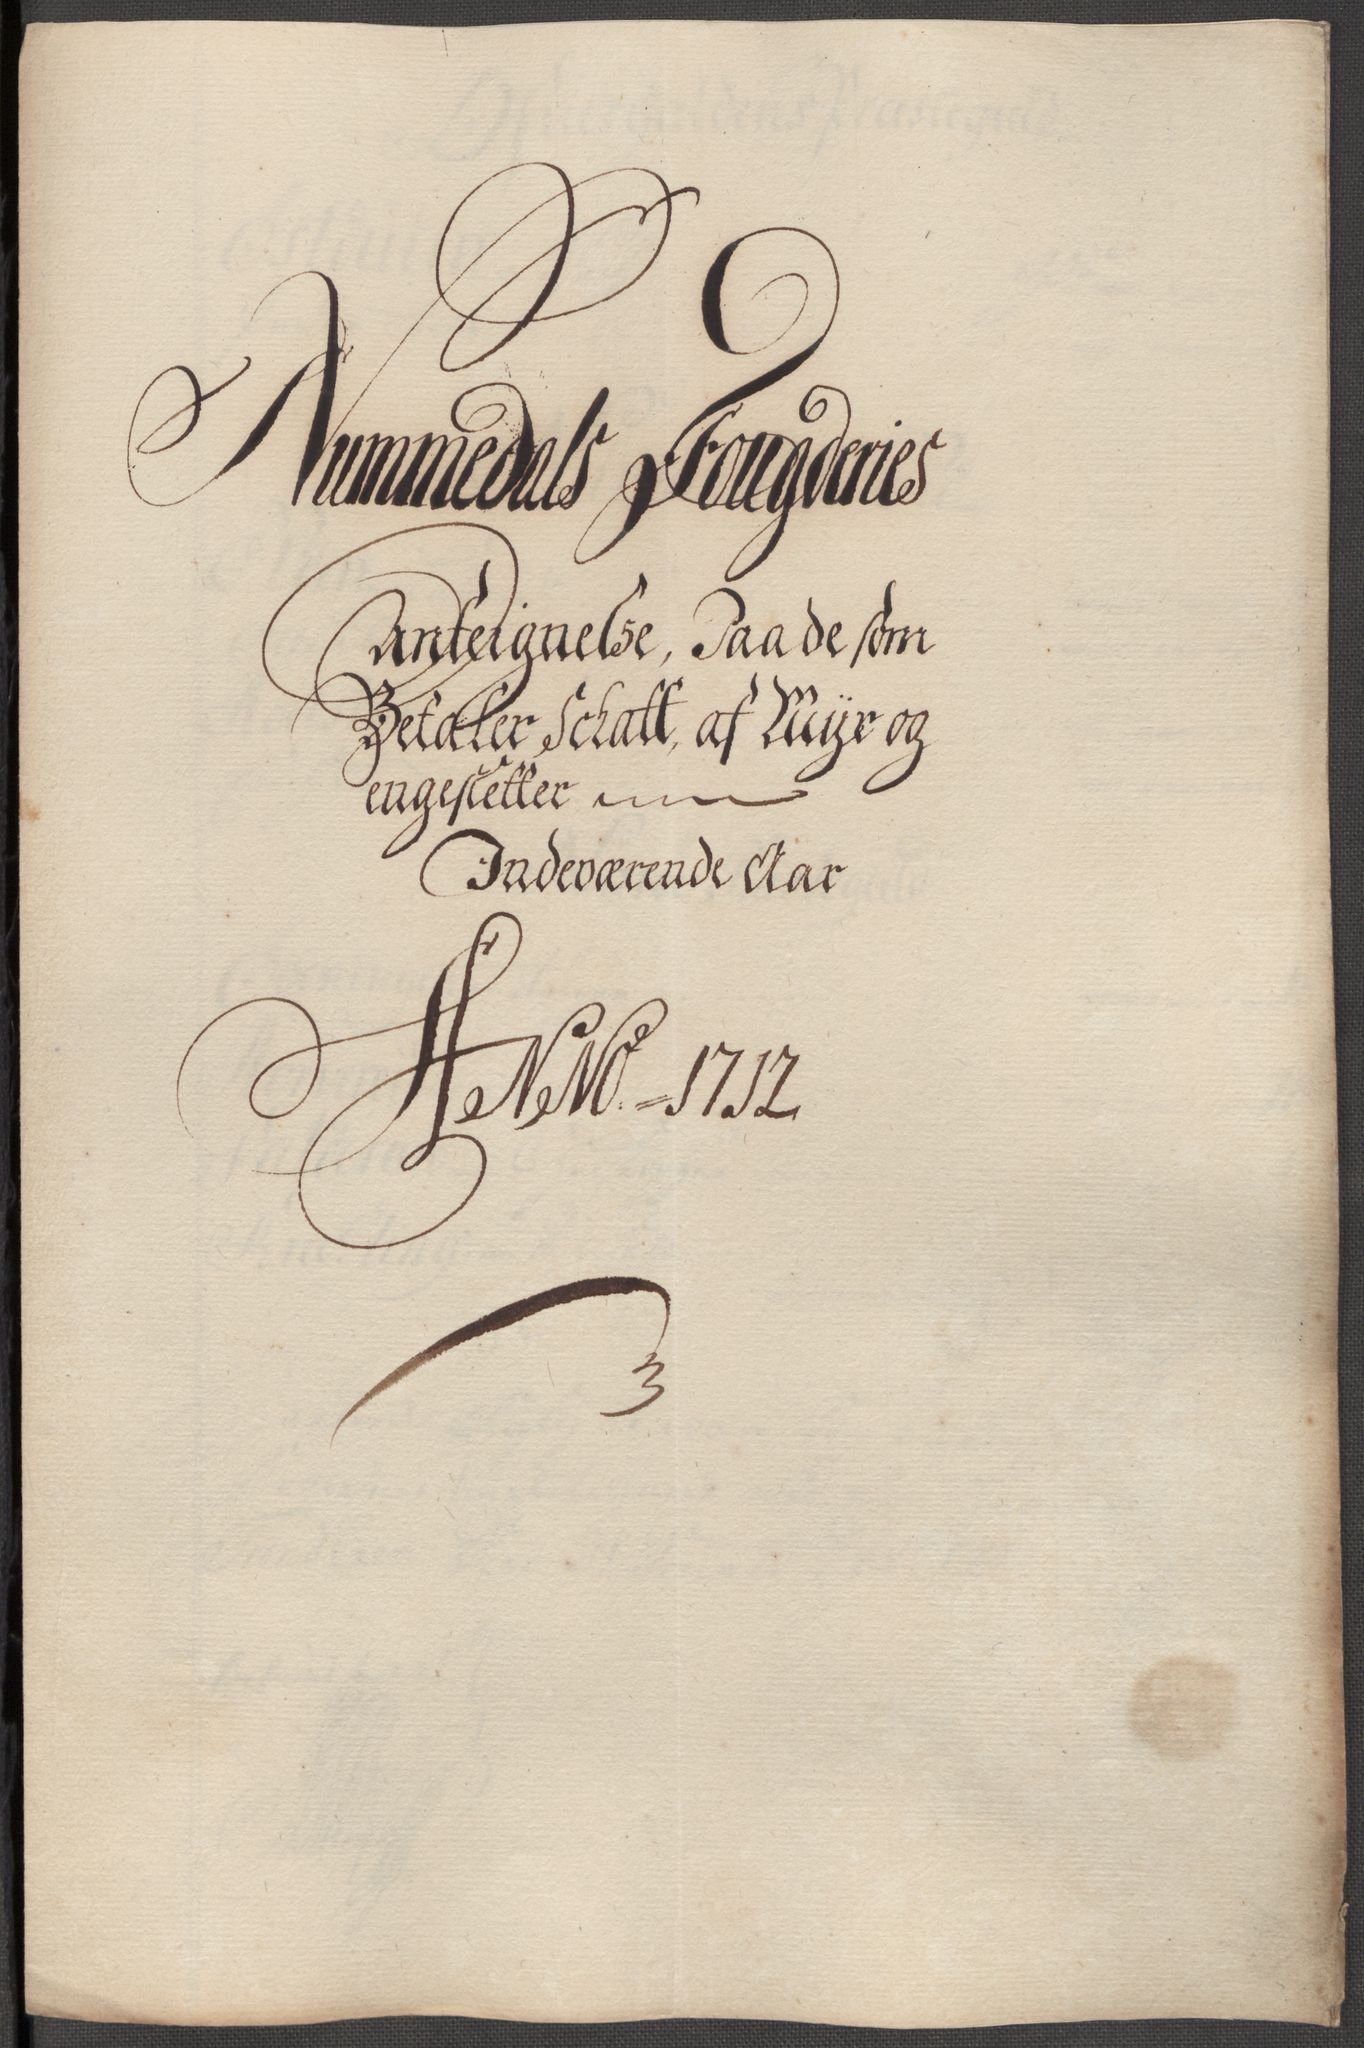 Nummedals Fougderies
Anteignelse, Paa de som
Betaler Schatt, af Myr og
engesletter
Indeværende Aar
ANNO 1712